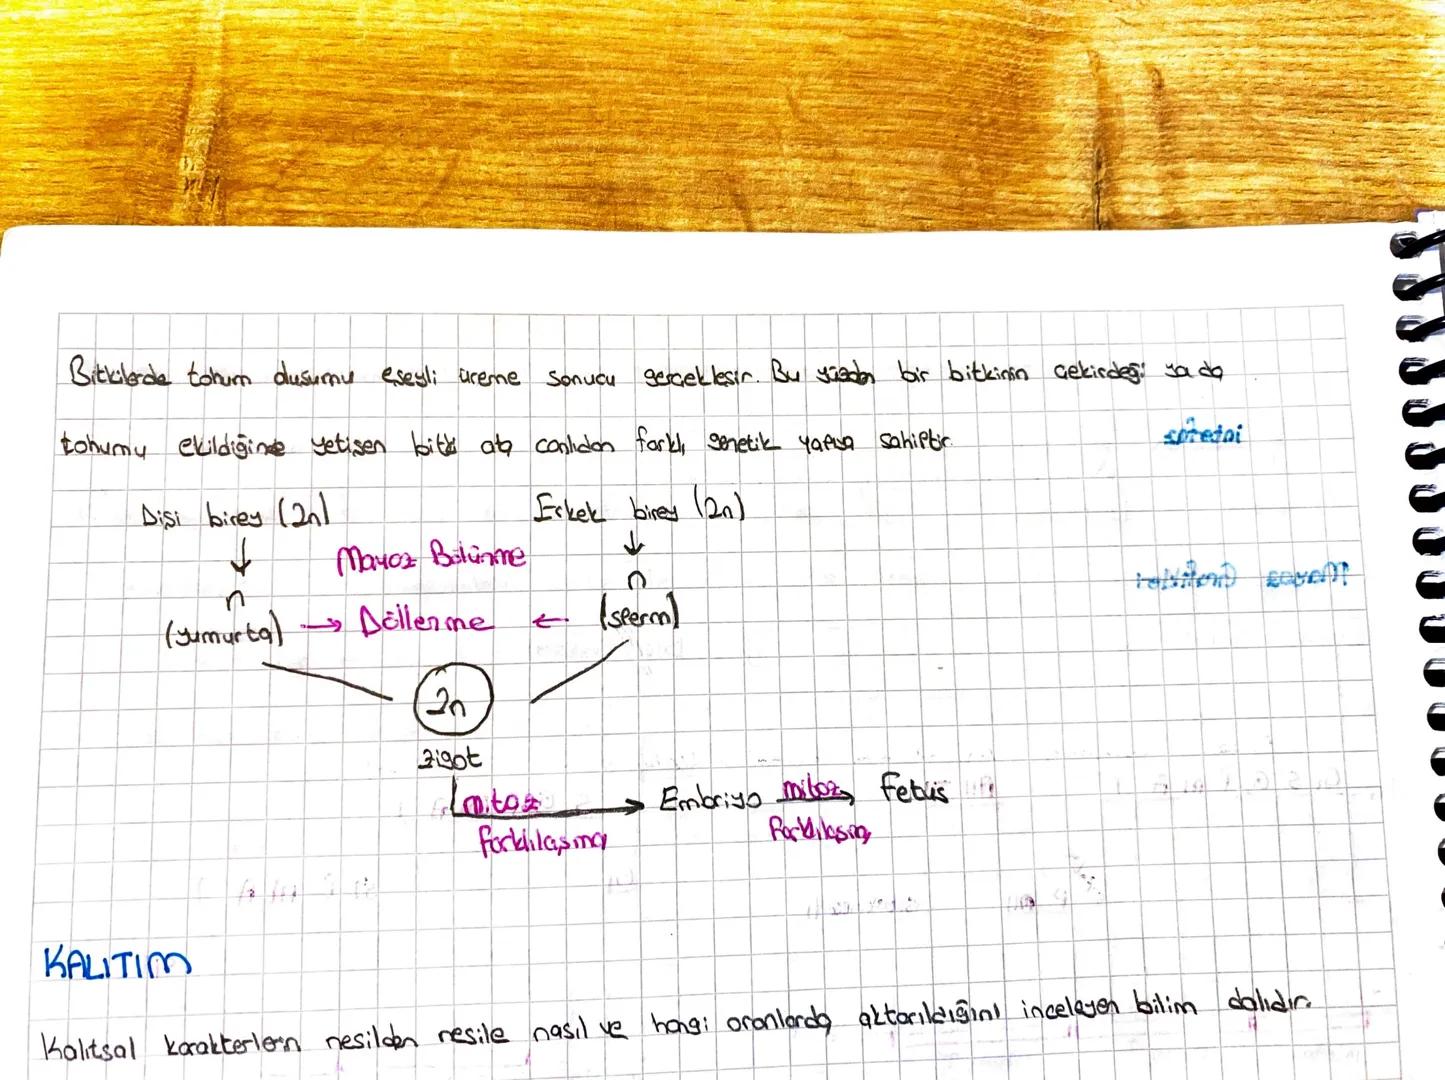 Bitkilerde tohum dusumu eseyli üreme sonucu gerceklesir. Bu yüzden bir bitkinin çekirdeği ya da
tohumu ekildiğinde yetisen bitki ata canlıdan farklı genetik yapıya sahiptir.
Dişi birey (2n) Erkek birey (2n)
Mayoz Bölünme
n n
(yumurta) → Döllenme ← (sperm)
2n
zigot
mitoz → Embriyo mitoz → Fetüs
farklılaşma farklılaşma
KALITIM
Kalıtsal karakterlerin nesilden nesile nasıl ve hangi oranlarda aktarıldığını inceleyen bilim dalıdır.